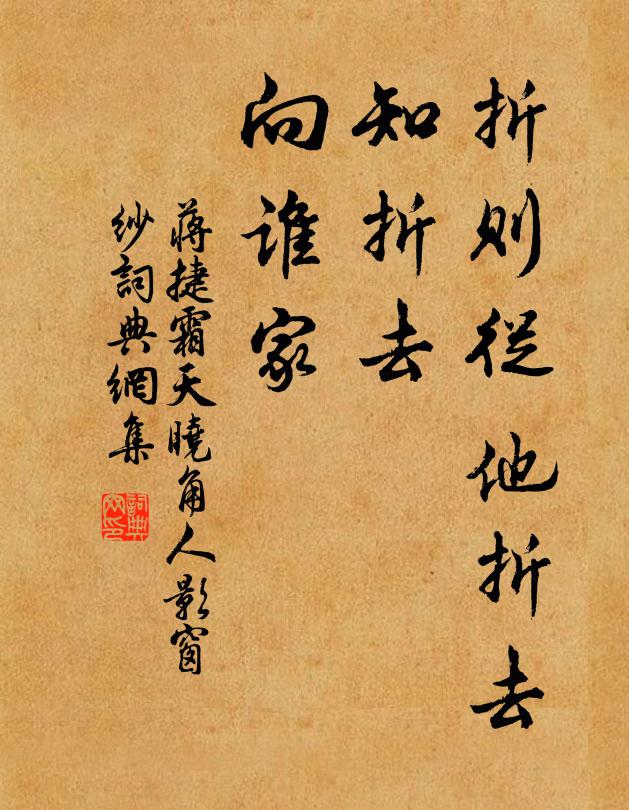 折則從他折去
知折去
向誰家
蔣捷霜天曉角人影窗
紗詞典網集
詞典網印